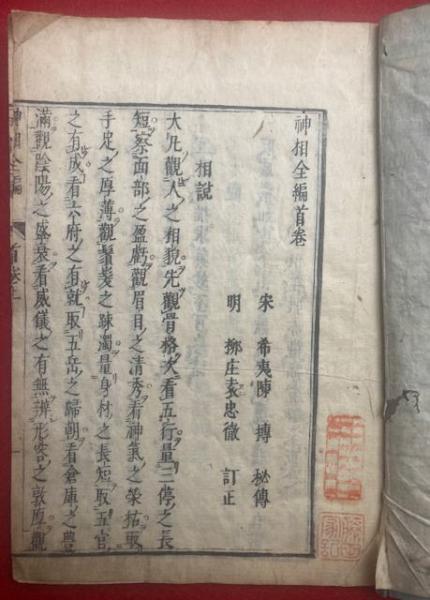 神相全編首卷
宋 希夷陳 摶 秘傳
明 柳庄袁忠徹 訂正
相説
大凡觀人之相貌先觀骨格次看五行量三停之長
短察面部之盈虧觀眉目之清秀看神氣之榮枯取
手足之厚薄觀鬚髮之踈濁量身材之長短取五官
之有成看六府之有就取五岳之歸朝看倉庫之豊
滿觀陰陽之盛衰看威儀之有無辨形容之敦厚觀
神相全編 首卷 上